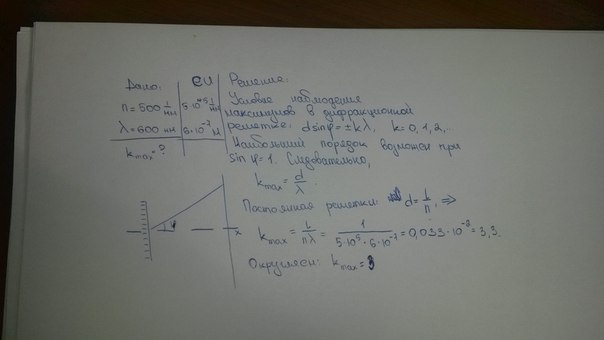 Дано:
СИ
n = 500 1/мм
5·10⁵ 1/м
λ = 600 нм
6·10⁻⁷ м
k max = ?
Решение:
Условие наблюдения
максимумов в дифракционной
решетке: d sin φ = ± kλ, k = 0, 1, 2, ..
Наибольший порядок возможен при
sin φ = 1. Следовательно,
k max = d/λ.
Постоянная решетки: d = 1/n, ⇒
k max = 1/nλ = 1/(5·10⁵·6·10⁻⁷) = 0,033·10⁻² = 3,3.
Округляем: k max = 3
φ
x